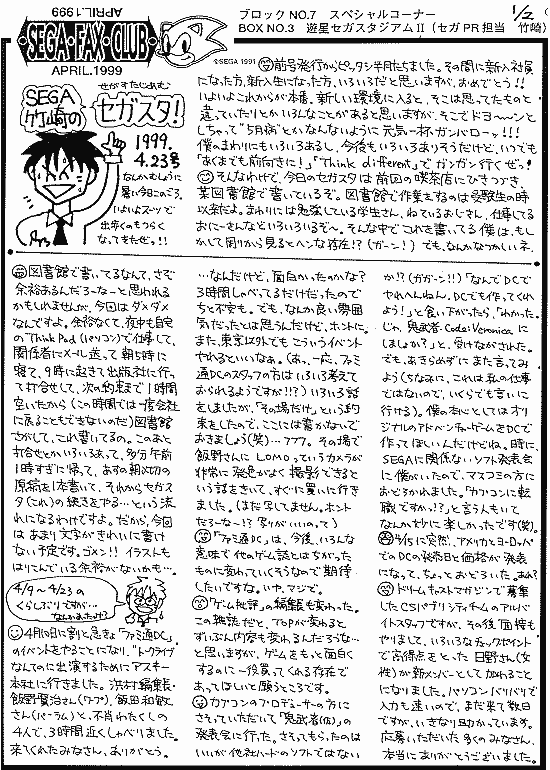 APRIL.1999
SEGA・FAX・CLUB
APRIL.1999
©SEGA 1991
ブロックNO.7 スペシャルコーナー
BOX NO.3 遊星セガスタジアムⅡ(セガPR担当 竹崎)
1/2
せがすたじあむ
SEGA
竹崎の
セガスタ!
1999.
4.23号
なんかもしょうに
暑い今日このごろ、
いよいよスーツで
出歩くのもつらく
なってきたぜっ!!
前号発行からピッタシ半月たちました。その間に新入社員
になった方、新入生になった方、いろいろだと思いますが、おめでとう!!
いよいよこれからが本番、新しい環境に入ると、そこは思ってたものと
違っていたりとかいろんなことがあると思いますが、そこでドヨ〜〜ンと
しちゃって"5月病"とかなんないように元気一杯ガンバローッ!!!
僕のまわりにもいろいろあるし、今後もいろいろありそうだけど、いつでも
「あくまでも前向きに!」「Think different」でガンガン行くぜっ!
そんなわけで、今日のセガスタは前回の喫茶店にひきつづき、
某図書館で書いているぞ。図書館で作業をするのは受験生の時
以来だよ。まわりには勉強している学生さん、ねているおじさん、仕事してる
おにーさんなどいろいろいるぞ〜。そんな中でこれを書いてる僕は、もし
かして周りから見るとヘンな存在!?(ガーン!)でも、なんかなつかしいネ。
図書館で書いてるなんて、さぞ
余裕あるんだろーなーと思われる
かもしれませんが、今回はダメダメ
なんですよ。余裕なくて、夜中も自宅
のThink Pad(パソコン)で仕事して、
関係者にメール送って朝5時に
寝て、9時に起きて出版社に行っ
て打合せして、次の約束まで1時間
空いたから(この時間では一度会社
に戻ることもできないのだ)図書館
さがして、これ書いてるの。このあと
打合せとかいろいろあって、多分午前
1時すぎに帰って、あすの朝〆切の
原稿を1本書いて、それからセガス
タ(これ)の続きをやる…という流
れになるわけですよ。だから、今回
はあまり文字がきれいに書け
ない予定です。ゴメン!!イラストも
はりこんでいる余裕がないかも…。
4/9〜4/23の
くらしぶりですが…
なんかあったっけ?
4月10日に割と急きょ「ファミ通DC」
のイベントをやることになり、"トークライブ
なんてのに出演するためにアスキー
本社に行きました。浜村編集長・
飯野賢治さん(ワープ)、飯田和敏
さん(パーラム)と、不肖わたくしの
4人で、3時間近くしゃべりました。
来てくれたみなさん、ありがとう。
…なんだけど、面白かったのかな?
3時間しゃべってるだけだったので
ちと不安も。でも、なんか良い雰囲
気だったとは思うんだけど、ホントに。
また、東京以外でもこういうイベント
やれるといいなぁ。(あ、一応、ファミ
通DCのスタッフの方はいろいろ考えて
おられるようですが!!?)いろいろ話
をしましたが、「その場だけ」という約
束をしたので、ここには書かないで
おきましょう(笑)…フフフ。その場で
飯野さんにLOMOっていうカメラが
非常に発色がよく撮影できると
いう話をきいて、すぐに買いに行き
ました。(まだ写してません。ホント
だろーなー!?写りがいいのって)
「ファミ通DC」は、今後、いろんな
意味で他のゲーム誌とはちがった
ものに変わっていくそうなので期待
したいですな。いや、マジで。
「ゲーム批評」の編集長も変わった。
この雑誌だと、TOPが変わると
ずいぶん内容も変わるんだろうな…
と思いますが、ゲームをもっと面白く
するのに一役買ってくれる存在で
あってほしいと願うところです。
カプコンのプロデューサーの方に
さそっていただいて「鬼武者(仮)」の
発表会に行った。さそってもらったのは
いいが他社ハードのソフトではない
か!?(ガガーン!!)「なんでDCで
やれへんねん。DCでも作ってくれ
よう!」と食い下がったら、「わかった。
じゃ、鬼武者Code:Veronicaに
しましょか?」と、受けながされた。
でも、あきらめずにまた言ってみ
よう(ちなみに、これは私の仕事
ではないので、いくらでも言いに
行ける)。僕の本心としてはオリ
ジナルのアドベンチャーゲームをDCで
作ってほしいんだけどね。時に、
SEGAに関係ないソフト発表会
に僕がいたので、マスコミの方に
おどろかれました。「カプコンに転
職ですかっ!?」と言う人もいて
なんか妙に楽しかったです(笑)。
4/15に突然、アメリカとヨーロッパ
でのDCの発売日と価格が発表
になって、ちょっとおどろいた。
ドリームキャストマガジンで募集
したCSパブリシティチームのアルバ
イトスタッフですが、その後、面接も
やりまして、いろいろなチェックポイント
で高得点をとった日野さん(女
性)が新メンバーとして加わること
になりました。パソコンバリバリで
入力も速いので、まだ来て数日
ですが、いきなり助かっています。
応募いただいた多くのみなさん、
本当にありがとうございました。